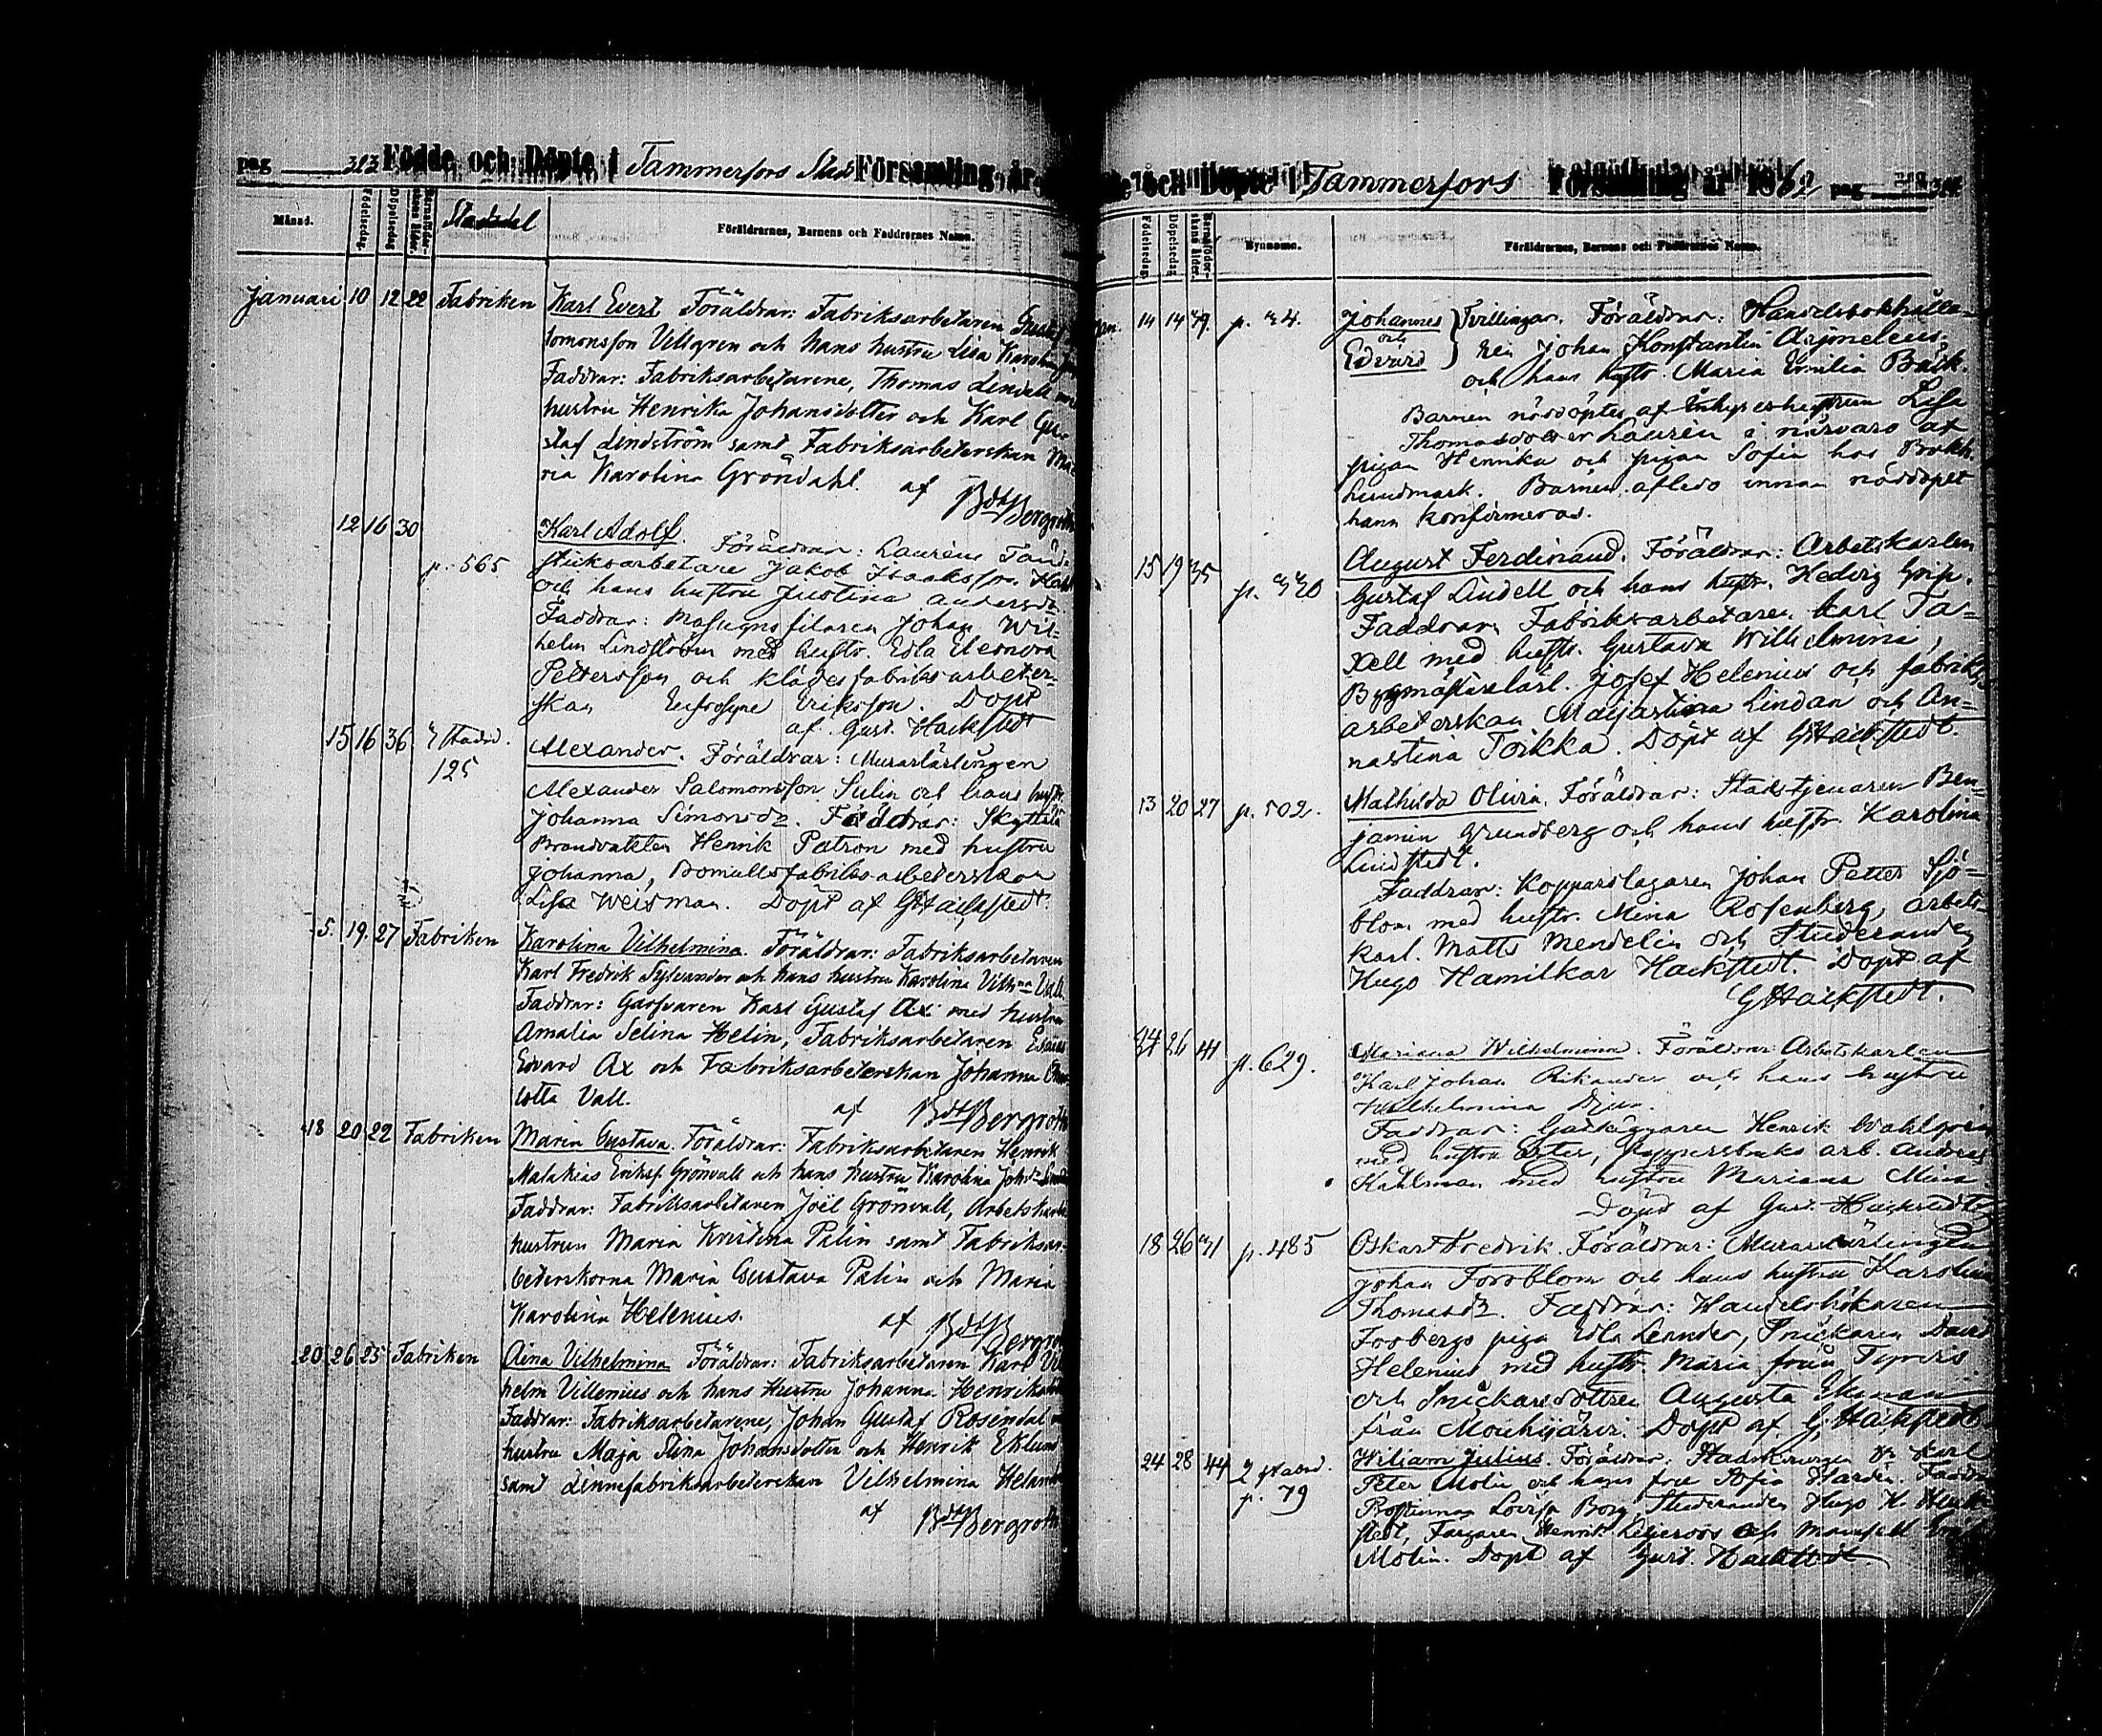 pag 313 Födde och Döpte i Tammerfors Stads Församling år
Månad. Födelsedag. Döpelsedag Barnaföderskans ålder. Stadsdel Föräldrarnes, Barnens och Faddrarnes Namn.
Januari 10 12 22 Fabriken Karl Evert Föräldrar: Fabriksarbetaren Gustaf
lomonsson Vellgren och hans hustru Lisa Karolina
Faddrar: Fabriksarbetarene, Thomas Lindell med
hustru Henrika Johansdotter och Karl Gu-
staf Lindström samt Fabriksarbeterskan Ma-
ria Karolina Gröndahl. af Bdt Bergroth
12 16 30 Karl Adolf. Föräldrar: Lauréns Tänd-
p. 565 sticksarbetare Jakob Isaaksson
och hans hustru Justina Andersdr
Faddrar: Masugnsfilaren Johan Wil-
helm Lindström med hustr. Edla Eleonora
Pettersson och klädesfabriksarbeter-
skan Eufrosyne Eriksson. Döpt
af Gust. Hackstedt
15 16 36 Alexander. Föräldrar: Murarlärlingen
125 Alexander Salomonsson Sulin och hans hustr.
Johanna Simonsdr. Faddrar:
Brandvakten Henrik Patron med hustru
Johanna, Bomullsfabriks-arbeterskan
Lisa Weisman. Döpt af GHackstedt.
5. 19. 27 Fabriken Karolina Vilhelmina. Föräldrar: Fabriksarbetaren
Karl Fredrik Sylvander och hans hustru Karolina Vilh:na Vall.
Faddrar: Garfvaren Karl Gustaf Ax med hustru
Amalia Selina Helin, Fabriksarbetaren
Edvard Ax och Fabriksarbeterskan Johanna Char-
lotta Vall. af Bdt Bergroth
18 20 22 Fabriken Maria Gustava. Föräldrar: Fabriksarbetaren Henrik
Malakias Eriks. Grönvall och hans hustru Karolina Joh:dr
Faddrar: Fabriksarbetaren Joël Grönvall, Arbetskarls
hustrun Maria Kristina Palin samt Fabriksar-
beterskorna Maria Gustava Palin och Maria
Karolina Helenius. af Bdt Bergroth
20 26 25 Fabriken Aina Vilhelmina Föräldrar: Fabriksarbetaren Karl Vil
helm Villenius och hans Hustru Johanna Henriksdr
Faddrar: Fabriksarbetarene, Johan Gustaf Rosendal
hustru Maja Stina Johansdotter och Henrik Eklund
samt Linnefabriksarbeterskan Vilhelmina
af Bdt Bergroth
och Döpte i Tammerfors Församling år 1862 pag
Födelsedag. Döpelsedag Barnaföderskans ålder. Bynamn. Föräldrarnes, Barnens och Faddrarnes Namn.
14 14 29. p. 24. Johannes och Edvard Tvillingar. Föräldrar: Handelsbokhålla-
ren Johan Konstantin Asjmeleus
och hans hustr. Maria Emilia Bäck.
Barnen nöddöptes af Enhyseshustrun Lisa
Thomasdotter Laurén i närvaro af
pigan Henrika och pigan Sofia hos Bokh.
Lundmark. Barnen afledo innan nöddopet
hann konfirmeras.
15 19 35 p. 220 August Ferdinand. Föräldrar: Arbetskarlen
Gustaf Lindell och hans hustr. Hedvig Grip.
Faddrar: Fabriksarbetaren Karl Ta-
xell med hustr. Gustava Wilhelmina,
Byggmästarelärl. Josef Helenius och fabriks-
arbeterskan Majastina Lindan och An-
nastina Toikka. Döpt af GHackstedt.
13 20 27 p. 502. Mathilda Olivia. Föräldrar: Stadstjenaren Ben-
jamin Grundberg och hans hustr. Karolina
Lindstedt.
Faddrar: Kopparslagaren Johan Petter Sjö-
blom med hustr. Mina Rosenberg, arbets-
karl. Matts Mendelin och Studeranden
Hugo Hamilkar Hackstedt. Döpt af
GHackstedt.
24 26 41 p. 629. Mariana Wilhelmina. Föräldrar: Arbetskarlen
Karl Johan Rikander och hans hustru
Wilhelmina
Faddrar: Henrik Wahlgren
med hustru Ester, Pappersbruks arb. Andreas
Kahlman med hustru Mariana Mina
Döpt af Gust. Hackstedt
18 26 21 p. 485 Oskar Fredrik. Föräldrar: Murarlärlingen
Johan Forsblom och hans hustru Karolina
Thomasdr. Faddrar: Handelsbokaren
Forbergs piga Edla Lennder, Snickaren David
Helenius med hustr. Maria från Tyrvis
och Snickarsdottren Augusta Ekman
från Mouhijärvi. Döpt af G. Hackstedt
24 28 44 2 stadsd. p. 79 Wiliam Julius. Föräldrar: Stadskirurgen Karl
Peter Molin och hans fru Sofia Hardin. Faddr
Lovisa Borg Studeranden Hugo H. Hack-
stedt, Färgaren Henrik Liljeroos och Mamsell
Molin. Döpt af Gust. Hackstedt